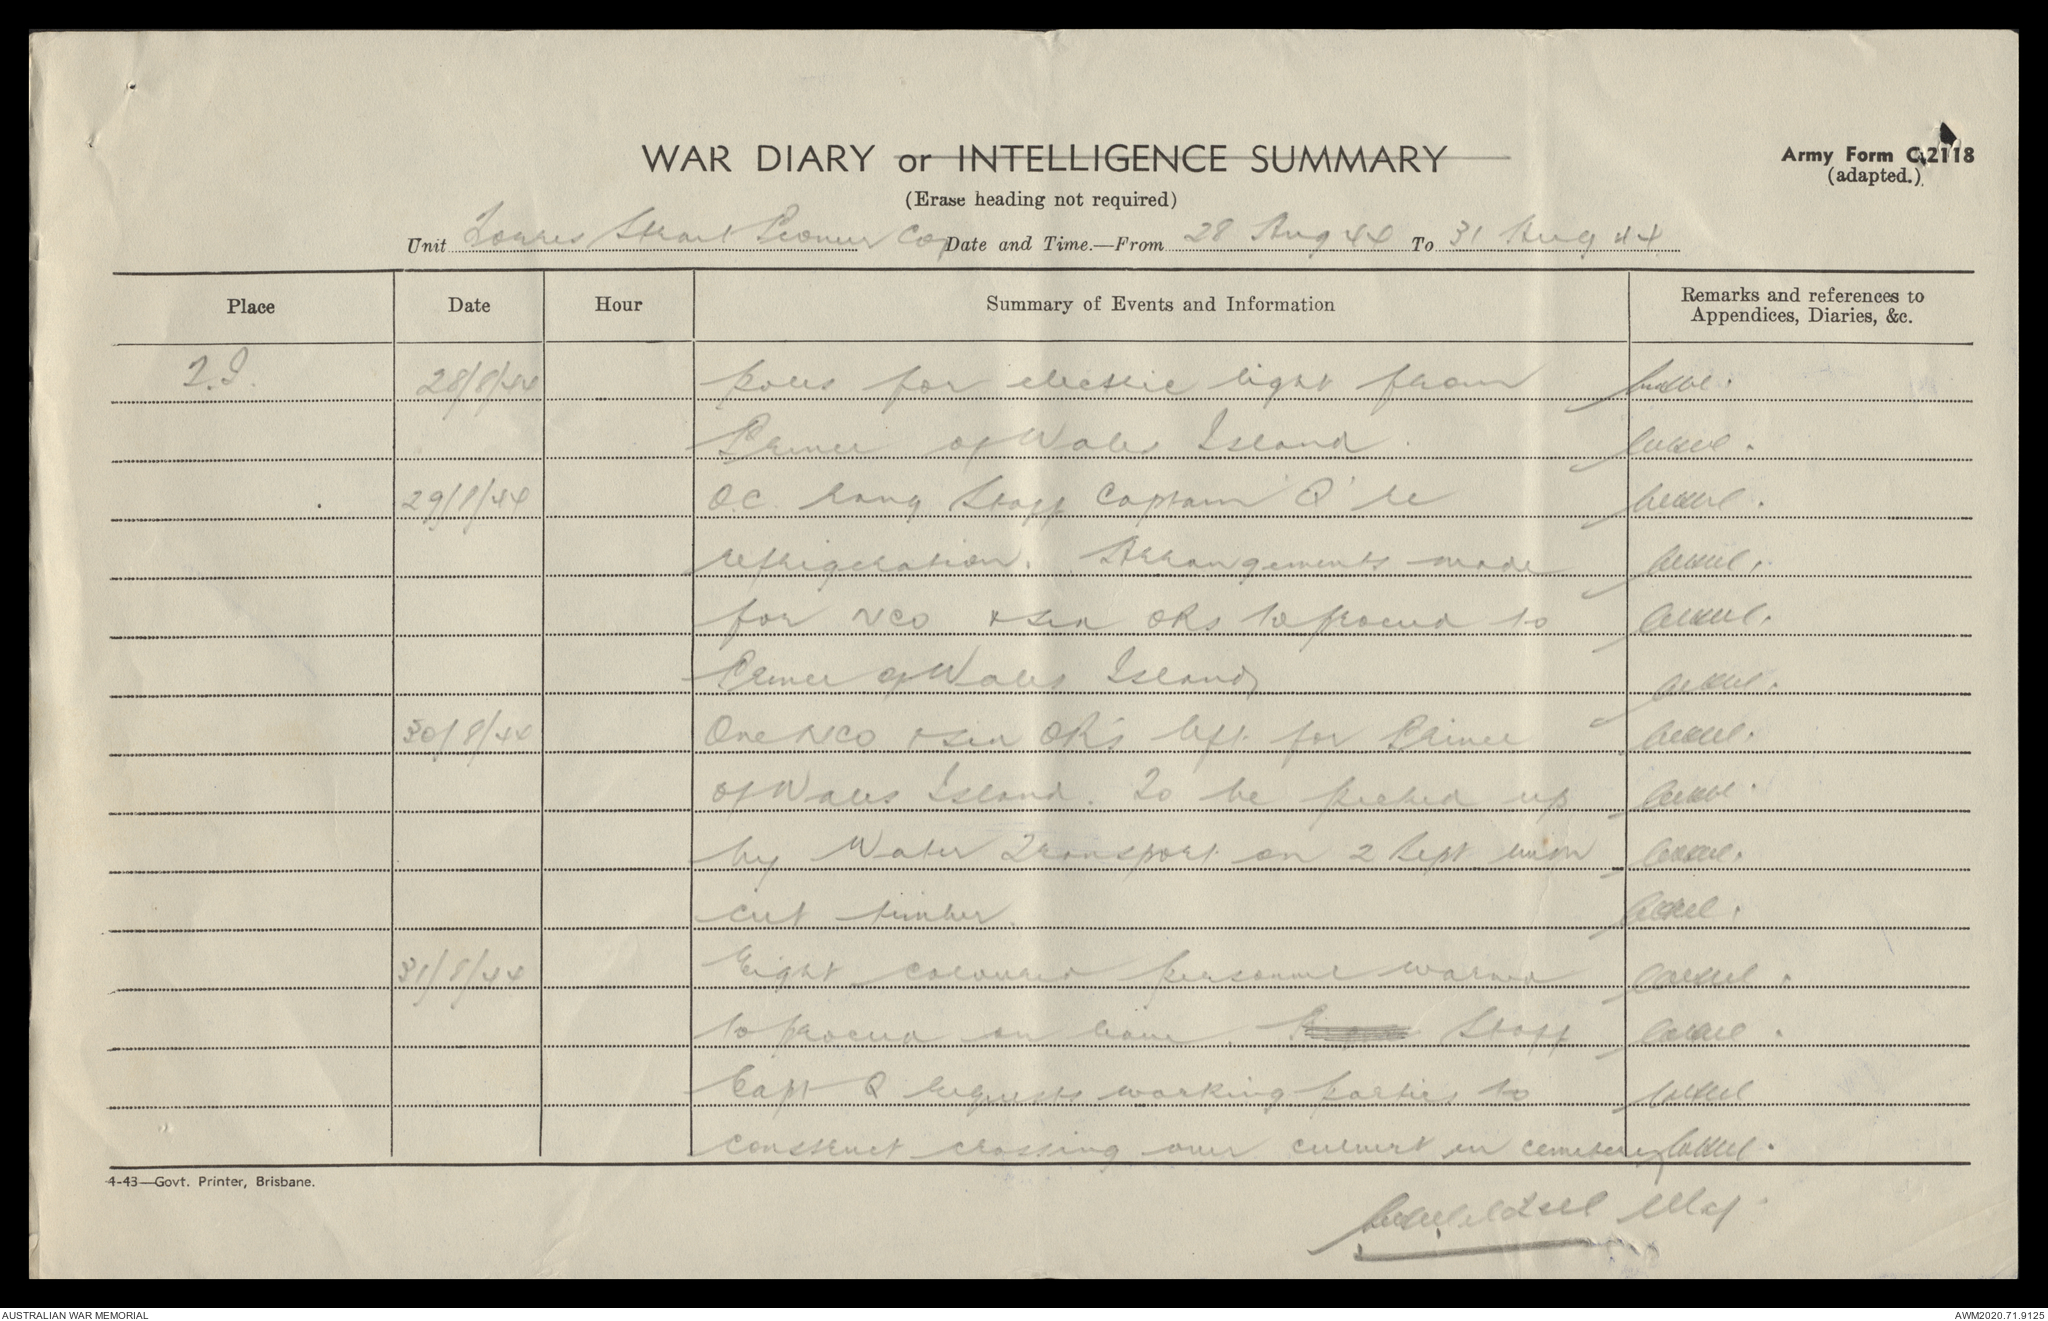 WAR DIARY or INTELLIGENCE SUMMARY
Army Form C.2118
(adapted.)
(Erase heading not required)
Unit Torres Strait Pioneer Coy Date and Time.—From 28 Aug 44 To 31 Aug 44
Place Date Hour Summary of Events and Information Remarks and references to Appendices, Diaries, &c.
T.I. 28/8/44 poles for electric light from
Prince of Wales Island.
29/8/44 O.C. rang Staff Captain 'Q' re
refrigeration. Arrangements made
for NCO & six ORs to proceed to
Prince of Wales Island
30/8/44 One NCO & six OR's left for Prince
of Wales Island. To be picked up
by Water Transport on 2 Sept with
cut timber.
31/8/44 Eight coloured personnel warned
to proceed on leave. Staff
Capt Q requests working parties to
construct crossing over culvert in cemetery
4-43—Govt. Printer, Brisbane.
Maj
AUSTRALIAN WAR MEMORIAL
AWM2020.71.9125